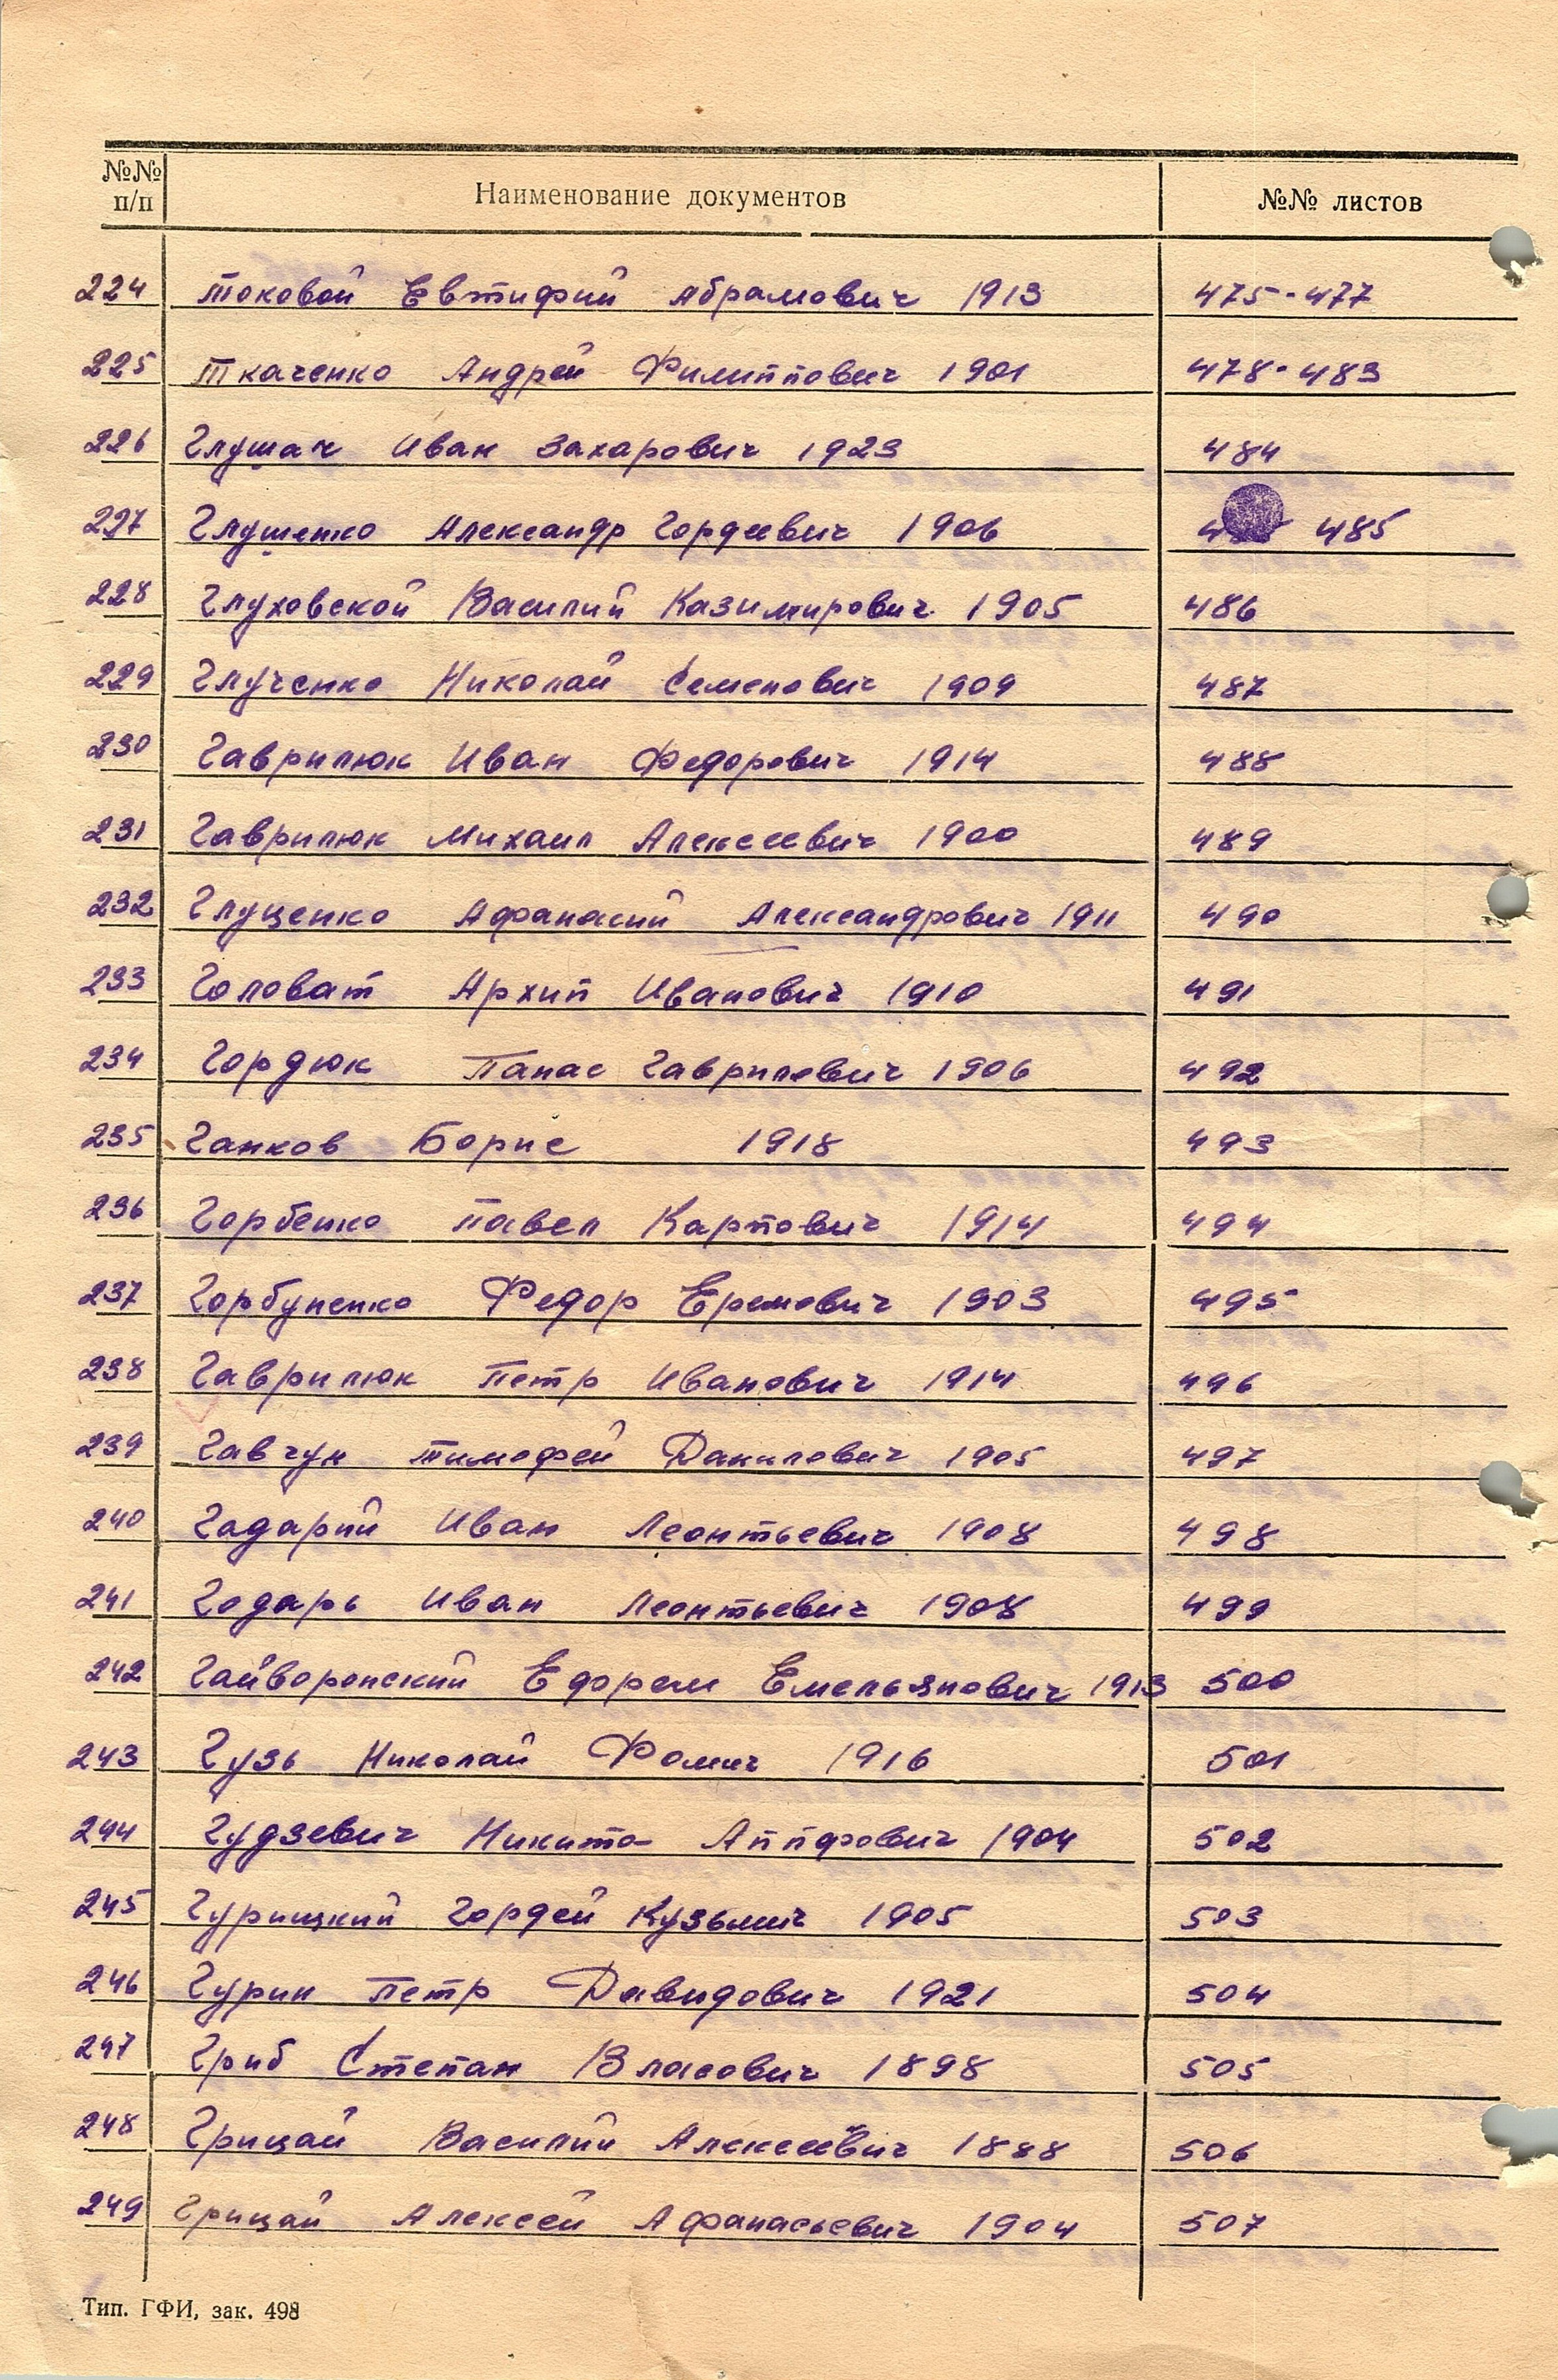 №№ п/п Наименование документов №№ листов
224 Токовой Евтифий Абрамович 1913 475-477
225 Ткаченко Андрей Филиппович 1901 478-483
226 Глушач Иван Захарович 1923 484
227 Глушенко Александр Гордеевич 1906 485
228 Глуховской Василий Казимирович 1905 486
229 Глученко Николай Семенович 1909 487
230 Гаврилюк Иван Федорович 1914 488
231 Гаврилюк Михаил Алексеевич 1900 489
232 Глуценко Афанасий Александрович 1911 490
233 Головат Архип Иванович 1910 491
234 Гордюк Панас Гаврилович 1906 492
235 Ганков Борис 1918 493
236 Горбенко Павел Карпович 1914 494
237 Горбуненко Федор Еремович 1903 495
238 Гаврилюк Петр Иванович 1914 496
239 Гавчук Тимофей Данилович 1905 497
240 Гадарий Иван Леонтьевич 1908 498
241 Годарь Иван Леонтьевич 1908 499
242 Гайворонский Едорем Емельянович 1913 500
243 Гузь Николай Фомич 1916 501
244 Гудзевич Никита 1904 502
245 Гурицкий Гордей Кузьмич 1905 503
246 Гурин Петр Давидович 1921 504
247 Гриб Степан Власович 1898 505
248 Грицай Василий Алексеевич 1888 506
249 Грицай Алексей Афанасьевич 1904 507
Тип. ГФИ, зак. 498